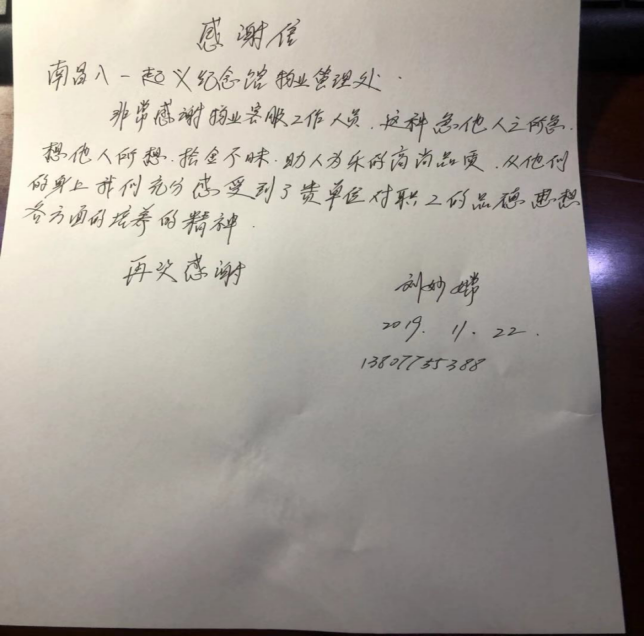 感谢信
南昌八一起义纪念馆物业管理处.
非常感谢物业客服工作人员.这种急他人之所急.
想他人所想.拾金不昧.助人为乐的高尚品质.从他们
的身上我们充分感受到了贵单位对职工的品德思想
各方面的培养的精神.
再次感谢
刘妙嫦
2019.11.22.
13807755388